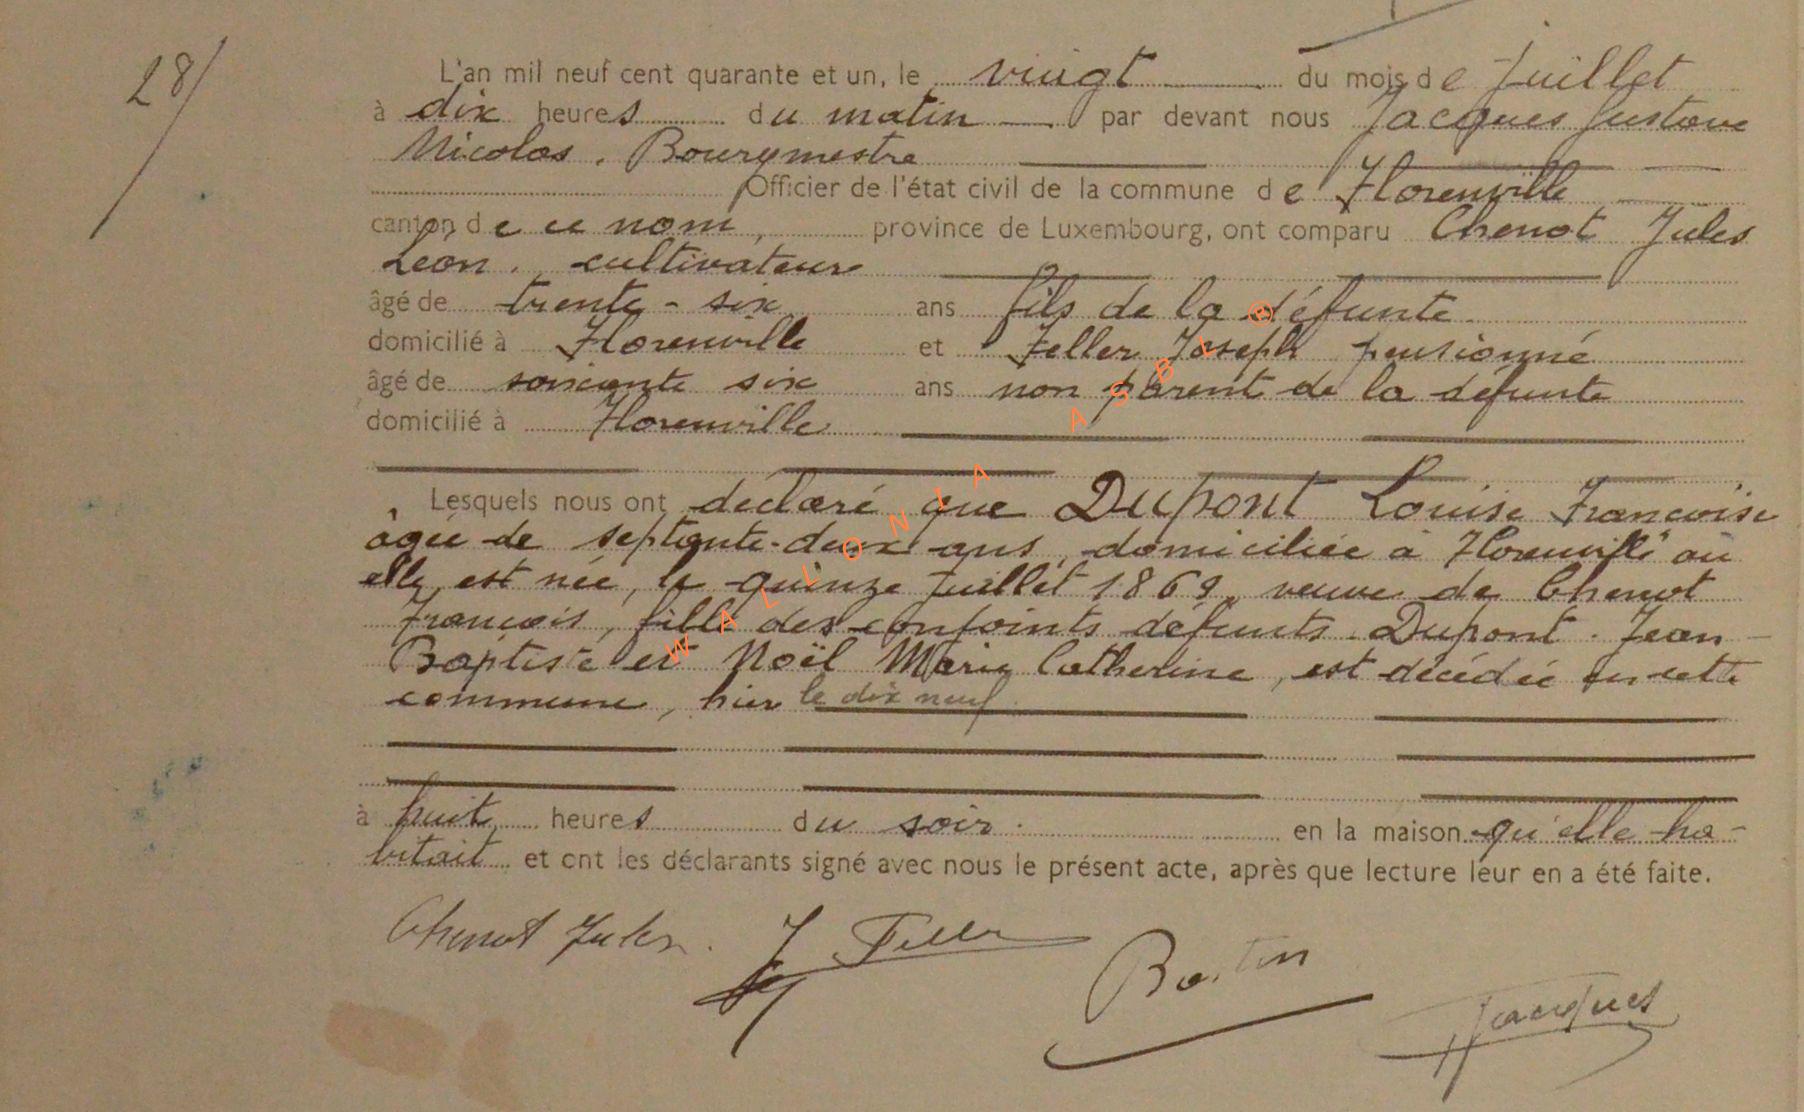 28/
L'an mil neuf cent quarante et un, le vingt du mois de Juillet
à dix heures du matin par devant nous Jacques Gustave
Nicolas, Bourgmestre
Officier de l'état civil de la commune de Florenville
canton de ce nom, province de Luxembourg, ont comparu Chenot Jules
Léon, cultivateur
âgé de trente-six ans fils de la défunte
domicilié à Florenville et Feller Joseph pensionné
âgé de soixante six ans non parent de la défunte
domicilié à Florenville
Lesquels nous ont déclaré que Dupont Louise Françoise
âgée de septante-deux ans, domiciliée à Florenville où
elle est née, le quinze Juillet 1869, veuve de Chenot
François, fille des conjoints défunts Dupont Jean-
Baptiste et Noël Marie Catherine, est décédée en cette
commune, hier le dix neuf
à huit heures du soir. en la maison qu'elle ha-
bitait et ont les déclarants signé avec nous le présent acte, après que lecture leur en a été faite.
Chenot Jules. J Feller
Jacques
WALLONIA ASBL ®